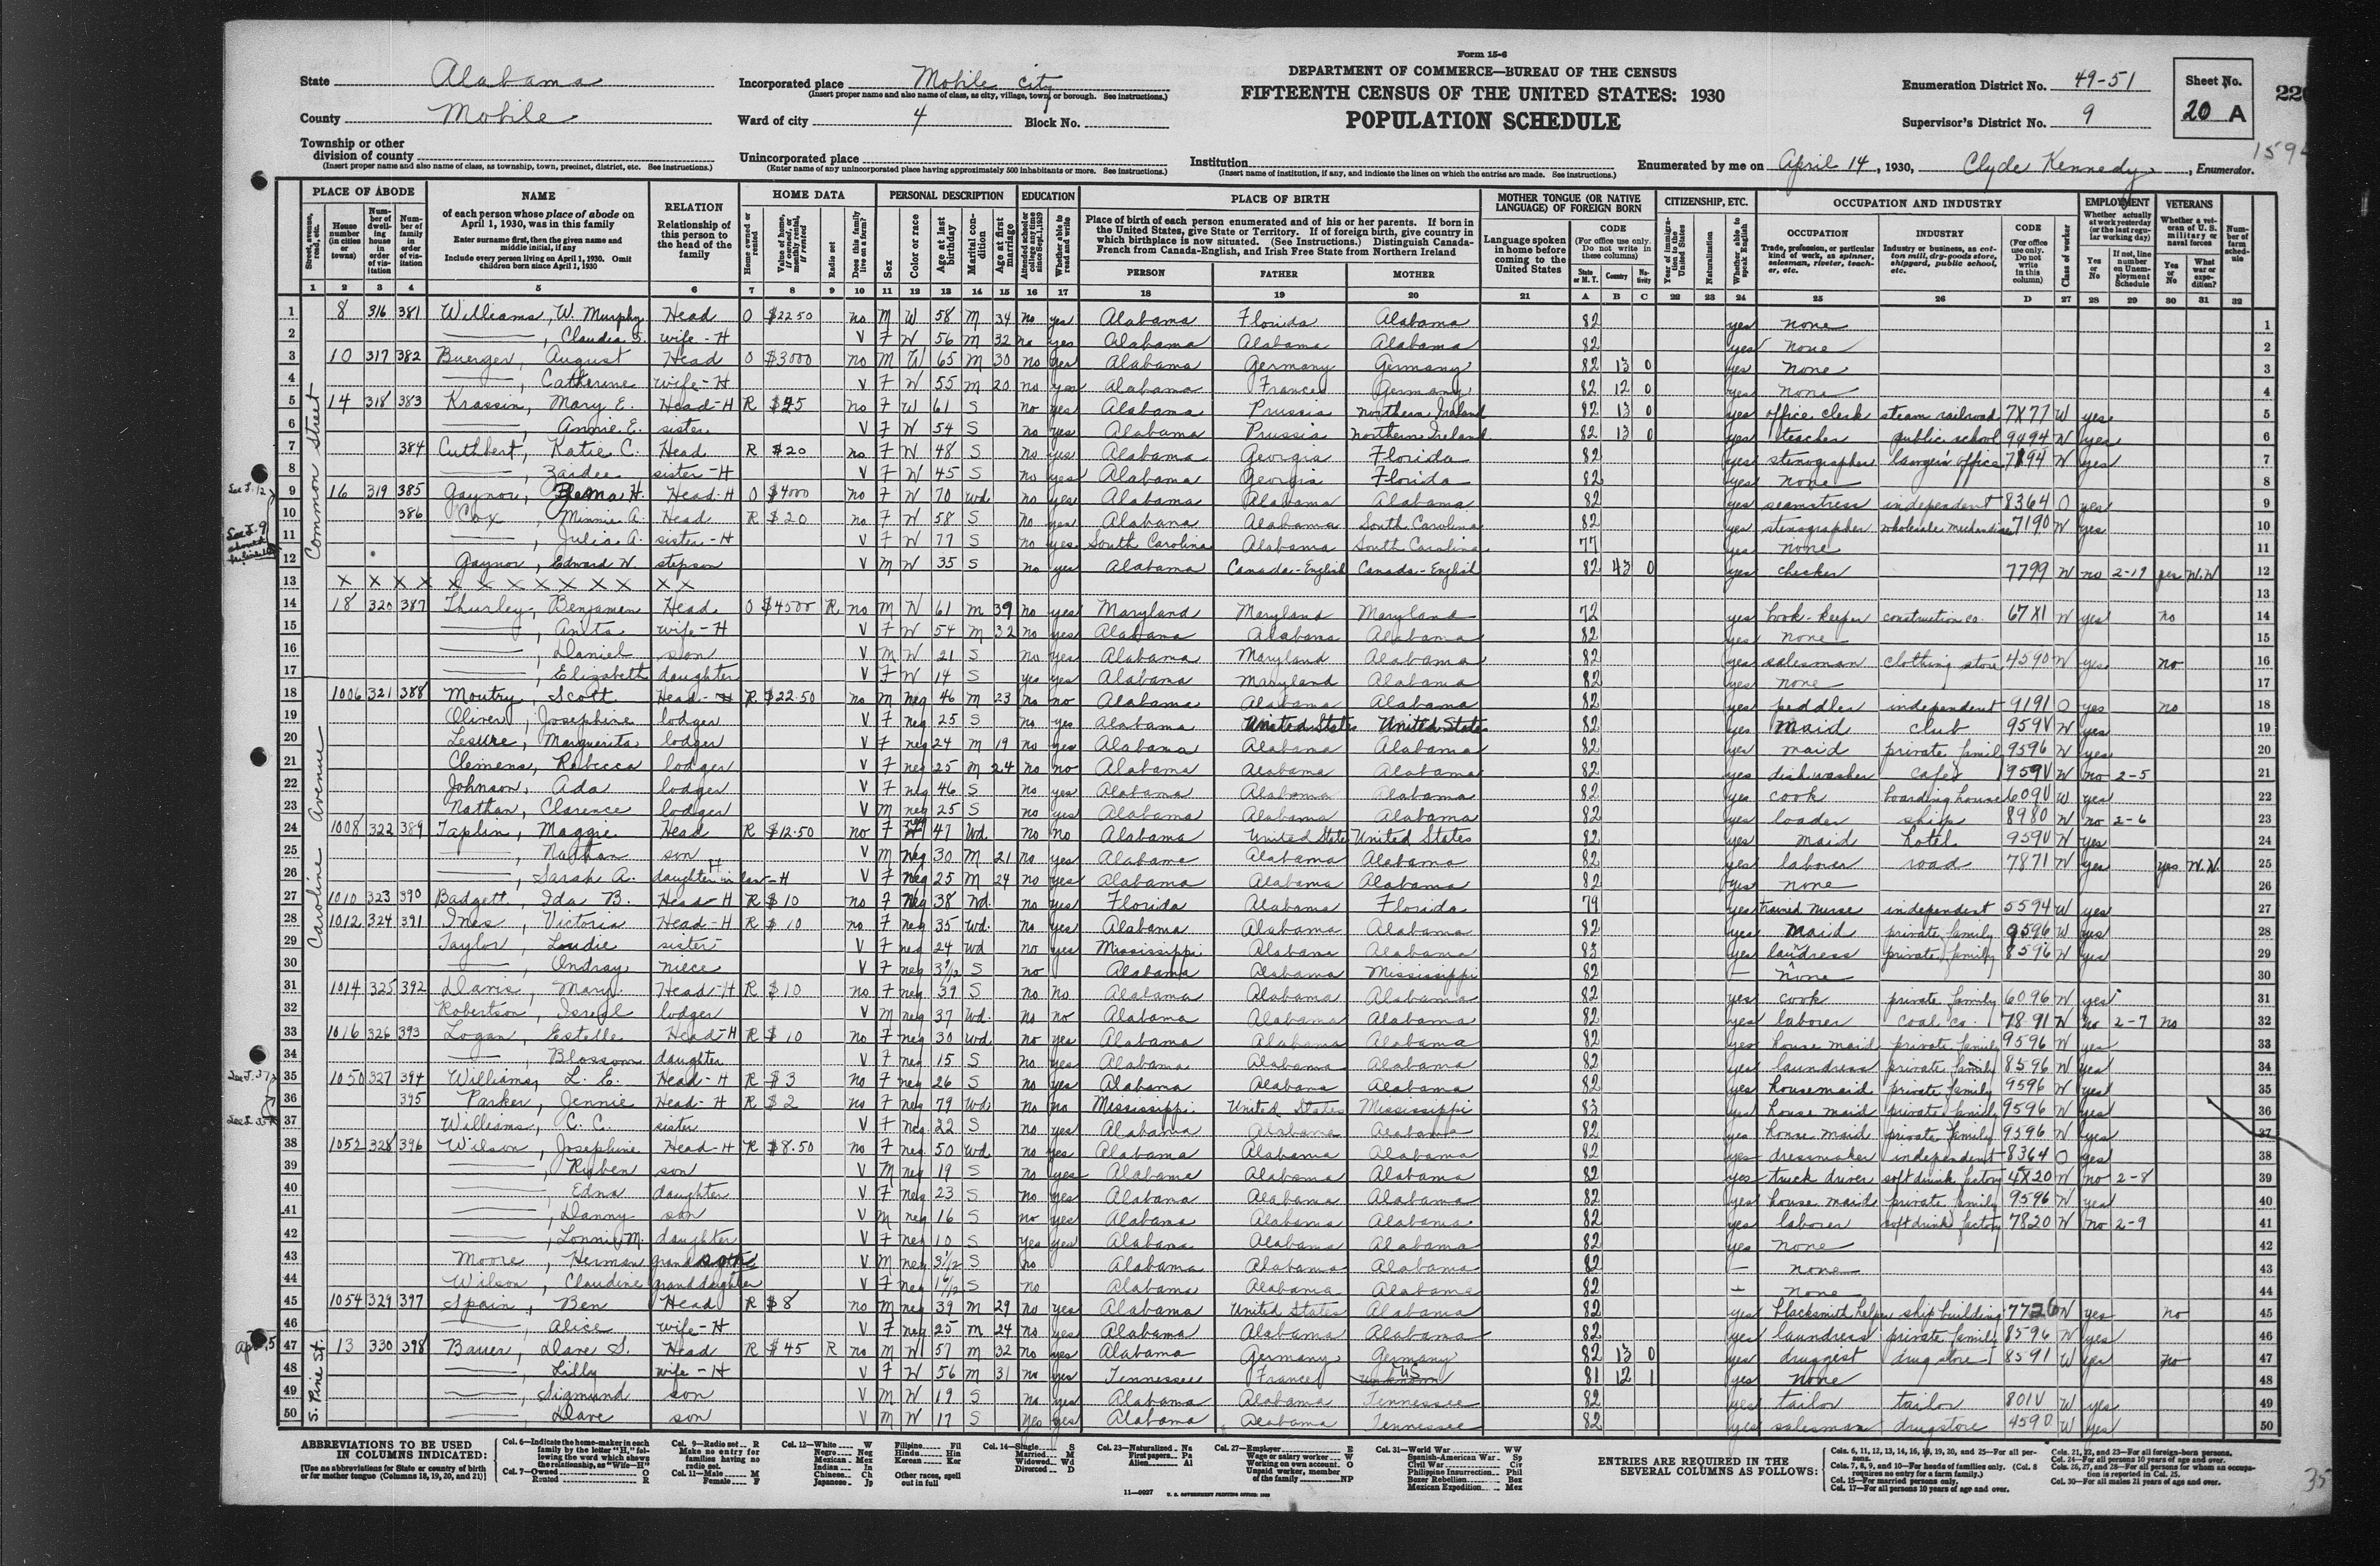 Form 15-6
DEPARTMENT OF COMMERCE—BUREAU OF THE CENSUS
FIFTEENTH CENSUS OF THE UNITED STATES: 1930
POPULATION SCHEDULE
State Alabama
County Mobile
Township or other division of county
(Insert proper name and also name of class, as township, town, precinct, district, etc. See instructions.)
Incorporated place Mobile city
(Insert proper name and also name of class, as city, village, town, or borough. See instructions.)
Ward of city 4 Block No.
Unincorporated place
(Enter name of any unincorporated place having approximately 500 inhabitants or more. See instructions.)
Institution
(Insert name of institution, if any, and indicate the lines on which the entries are made. See instructions.)
Enumeration District No. 49-51
Supervisor's District No. 9
Sheet No. 20 A
Enumerated by me on April 14, 1930, Clyde Kennedy, Enumerator.
PLACE OF ABODE NAME RELATION HOME DATA PERSONAL DESCRIPTION EDUCATION PLACE OF BIRTH MOTHER TONGUE (OR NATIVE LANGUAGE) OF FOREIGN BORN CITIZENSHIP, ETC. OCCUPATION AND INDUSTRY EMPLOYMENT VETERANS
Common Street
1 8 316 381 Williams, W. Murphy Head O $2250 no M W 58 M 34 no yes Alabama Florida Alabama 82 yes none 1
2 Claudia S. wife-H V F W 56 M 32 no yes Alabama Alabama Alabama 82 yes none 2
3 10 317 382 Buerger, August Head O $3000 no M W 65 M 30 no yes Alabama Germany Germany 82 13 0 yes none 3
4 Catherine wife-H V F W 55 M 20 no yes Alabama France Germany 82 12 0 yes none 4
5 14 318 383 Krassin, Mary E. Head-H R $25 no F W 61 S no yes Alabama Prussia Northern Ireland 82 13 0 yes office clerk steam railroad 7X77 W yes 5
6 Annie E. sister V F W 54 S no yes Alabama Prussia Northern Ireland 82 13 0 yes teacher public school 9494 W yes 6
7 384 Cuthbert, Katie C. Head R $20 no F W 48 S no yes Alabama Georgia Florida 82 yes stenographer lawyer's office 7194 W yes 7
8 Zaidee sister-H V F W 45 S no yes Alabama Georgia Florida 82 yes none 8
9 16 319 385 Gaynor, H. Head-H O $4000 no F W 70 Wd no yes Alabama Alabama Alabama 82 yes seamstress independent 8364 O yes 9
10 386 Cox, Minnie A. Head R $20 no F W 58 S no yes Alabama Alabama South Carolina 82 yes stenographer wholesale merchandise 7190 W yes 10
11 Julia A. sister-H V F W 77 S no yes South Carolina Alabama South Carolina 77 yes none 11
12 Gaynor, Edward W. stepson V M W 35 S no yes Alabama Canada-English Canada-English 82 43 0 yes checker 7799 W no 2-19 yes W.W 12
13 X X X X X X X X X X X X X 13
14 18 320 387 Thurley, Benjamin Head O $4500 R no M W 61 M 39 no yes Maryland Maryland Maryland 72 yes book-keeper construction co. 67X1 W yes no 14
15 Anita wife-H V F W 54 M 32 no yes Alabama Alabama Alabama 82 yes none 15
16 Daniel son V M W 21 S no yes Alabama Maryland Alabama 82 yes salesman clothing store 4590 W yes no 16
17 Elizabeth daughter V F W 14 S yes yes Alabama Maryland Alabama 82 yes none 17
Caroline Avenue
18 1006 321 388 Moutry, Scott Head-H R $22.50 no M neg 46 M 23 no no Alabama Alabama Alabama 82 yes peddler independent 9191 O yes no 18
19 Oliver, Josephine lodger V F neg 25 S no yes Alabama United States United States 82 yes maid club 959V W yes 19
20 Lesure, Marguerita lodger V F neg 24 M 19 no yes Alabama Alabama Alabama 82 yes maid private family 9596 W yes 20
21 Clemens, Rebecca lodger V F neg 25 M 24 no no Alabama Alabama Alabama 82 yes dishwasher cafe 959V W no 2-5 21
22 Johnson, Ada lodger V F neg 46 S no yes Alabama Alabama Alabama 82 yes cook boarding house 609V W yes 22
23 Nathan, Clarence lodger V M neg 25 S no yes Alabama Alabama Alabama 82 yes loader ship 8980 W no 2-6 23
24 1008 322 389 Taplin, Maggie Head R $12.50 no F neg 47 Wd no no Alabama United States United States 82 yes maid hotel 959V W yes 24
25 Nathan son V M neg 30 M 21 no yes Alabama Alabama Alabama 82 yes laborer road 7871 W yes yes W.W. 25
26 Sarah A. daughter in law-H V F neg 25 M 24 no yes Alabama Alabama Alabama 82 yes none 26
27 1010 323 390 Badgett, Ida B. Head-H R $10 no F neg 38 Wd no yes Florida Alabama Florida 79 yes trained nurse independent 5594 W yes 27
28 1012 324 391 Ines, Victoria Head-H R $10 no F neg 35 Wd no yes Alabama Alabama Alabama 82 yes maid private family 9596 W yes 28
29 Taylor, Loudie sister V F neg 24 Wd no yes Mississippi Alabama Alabama 83 yes laundress private family 8596 W yes 29
30 Ondray niece V F neg 3 1/2 S no Alabama Alabama Mississippi 82 – none 30
31 1014 325 392 Davis, Mary Head-H R $10 no F neg 39 S no no Alabama Alabama Alabama 82 yes cook private family 6096 W yes 31
32 Robertson, Isreal lodger V M neg 37 Wd. no no Alabama Alabama Alabama 82 yes laborer coal co. 7891 W no 2-7 no 32
33 1016 326 393 Logan, Estelle Head-H R $10 no F neg 30 Wd no yes Alabama Alabama Alabama 82 yes house maid private family 9596 W yes 33
34 Blossom daughter V F neg 15 S no yes Alabama Alabama Alabama 82 yes laundress private family 8596 W yes 34
35 1050 327 394 Williams, L. E. Head-H R $3 no F neg 26 S no yes Alabama Alabama Alabama 82 yes housemaid private family 9596 W yes 35
36 395 Parker, Jennie Head-H R $2 no F neg 79 Wd no no Mississippi United States Mississippi 83 yes house maid private family 9596 W yes 36
37 Williams, C. C. sister V F neg 22 S no yes Alabama Alabama Alabama 82 yes house maid private family 9596 W yes 37
38 1052 328 396 Wilson, Josephine Head-H R $8.50 no F neg 50 Wd no yes Alabama Alabama Alabama 82 yes dressmaker independent 8364 O yes 38
39 Ruben son V M neg 19 S no yes Alabama Alabama Alabama 82 yes truck driver soft drink factory 4X20 W no 2-8 39
40 Edna daughter V F neg 23 S no yes Alabama Alabama Alabama 82 yes house maid private family 9596 W yes 40
41 Danny son V M neg 16 S no yes Alabama Alabama Alabama 82 yes laborer soft drink factory 7820 W no 2-9 41
42 Lonnie M. daughter V F neg 10 S yes yes Alabama Alabama Alabama 82 yes none 42
43 Moore, Herman grandson V M neg 3 1/2 S no Alabama Alabama Alabama 82 – none 43
44 Wilson, Claudine granddaughter V F neg 1 6/12 S no Alabama Alabama Alabama 82 – none 44
45 1054 329 397 Spain, Ben Head R $8 no M neg 39 M 29 no yes Alabama United States Alabama 82 yes blacksmith helper ship building 7726 W yes no 45
46 Alice wife-H V F neg 25 M 24 no yes Alabama Alabama Alabama 82 yes laundress private family 8596 W yes 46
S. Pine St.
47 13 330 398 Bauer, Dave S. Head R $45 R no M W 57 M 32 no yes Alabama Germany Germany 82 13 0 yes druggist drug store 8591 W yes no 47
48 Lilly wife-H V F W 56 M 31 no yes Tennessee France Unknown US 81 12 1 yes none 48
49 Sigmund son V M W 19 S no yes Alabama Alabama Tennessee 82 yes tailor tailor 801V W yes 49
50 Dave son V M W 17 S yes yes Alabama Alabama Tennessee 82 yes salesman drugstore 4590 W yes 50
ABBREVIATIONS TO BE USED IN COLUMNS INDICATED:
[Use no abbreviations for State or country of birth or for mother tongue (Columns 18, 19, 20, and 21)]
ENTRIES ARE REQUIRED IN THE SEVERAL COLUMNS AS FOLLOWS:
11—9027 U. S. GOVERNMENT PRINTING OFFICE: 1930
35